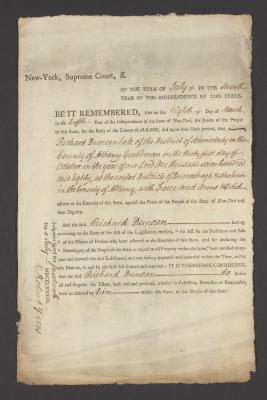 New-York, Supreme Court, &.
OF THE TERM OF July IN THE Seventh
YEAR OF THE INDEPENDENCE OF THIS STATE.
BE IT REMEMBERED, that on the Eighth Day of March
in the Fifth Year of the Independence of the State of New-York, the Jurors of the People
of this State, for the Body of the County of ALBANY, did upon their Oath present, that
Richard Duncan late of the District of Schenectady in the
County of Albany Gentleman on the thirty first day of
October in the year of our Lord One thousand seven hundred
and eighty, at the united Districts of Duanesburgh & Schoharie
in the County of Albany, with Force and Arms &c did
adhere to the Enemies of this State, against the Peace of the People of the State of New-York and
their Dignity.
And the said Richard Duncan having
according to the Form of the Act of the Legislature, entitled, "An Act for the Forfeiture and Sale
" of the Estates of Persons who have adhered to the Enemies of this State, and for declaring the
" Sovereignty of the People of this State in respect to all Property within the same," been notified to
and traverse the said Indictment, and not having appeared and traversed within the Time, and in
the Manner, in and by the said Act limited and required; IT IS THEREFORE CONSIDERED,
that the said Richard Duncan do forfeit
all and singular the Estate, both real and personal, whether in Possession, Reversion or Remainder,
held or claimed by him within this State, to the People of this State.
Judgment signed the
Day of July MDCCLXXXIII
Robert Yates